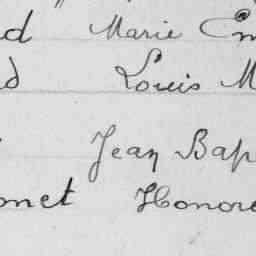 d Marie Em
d Louis M
Jean Bap
omet Honoré